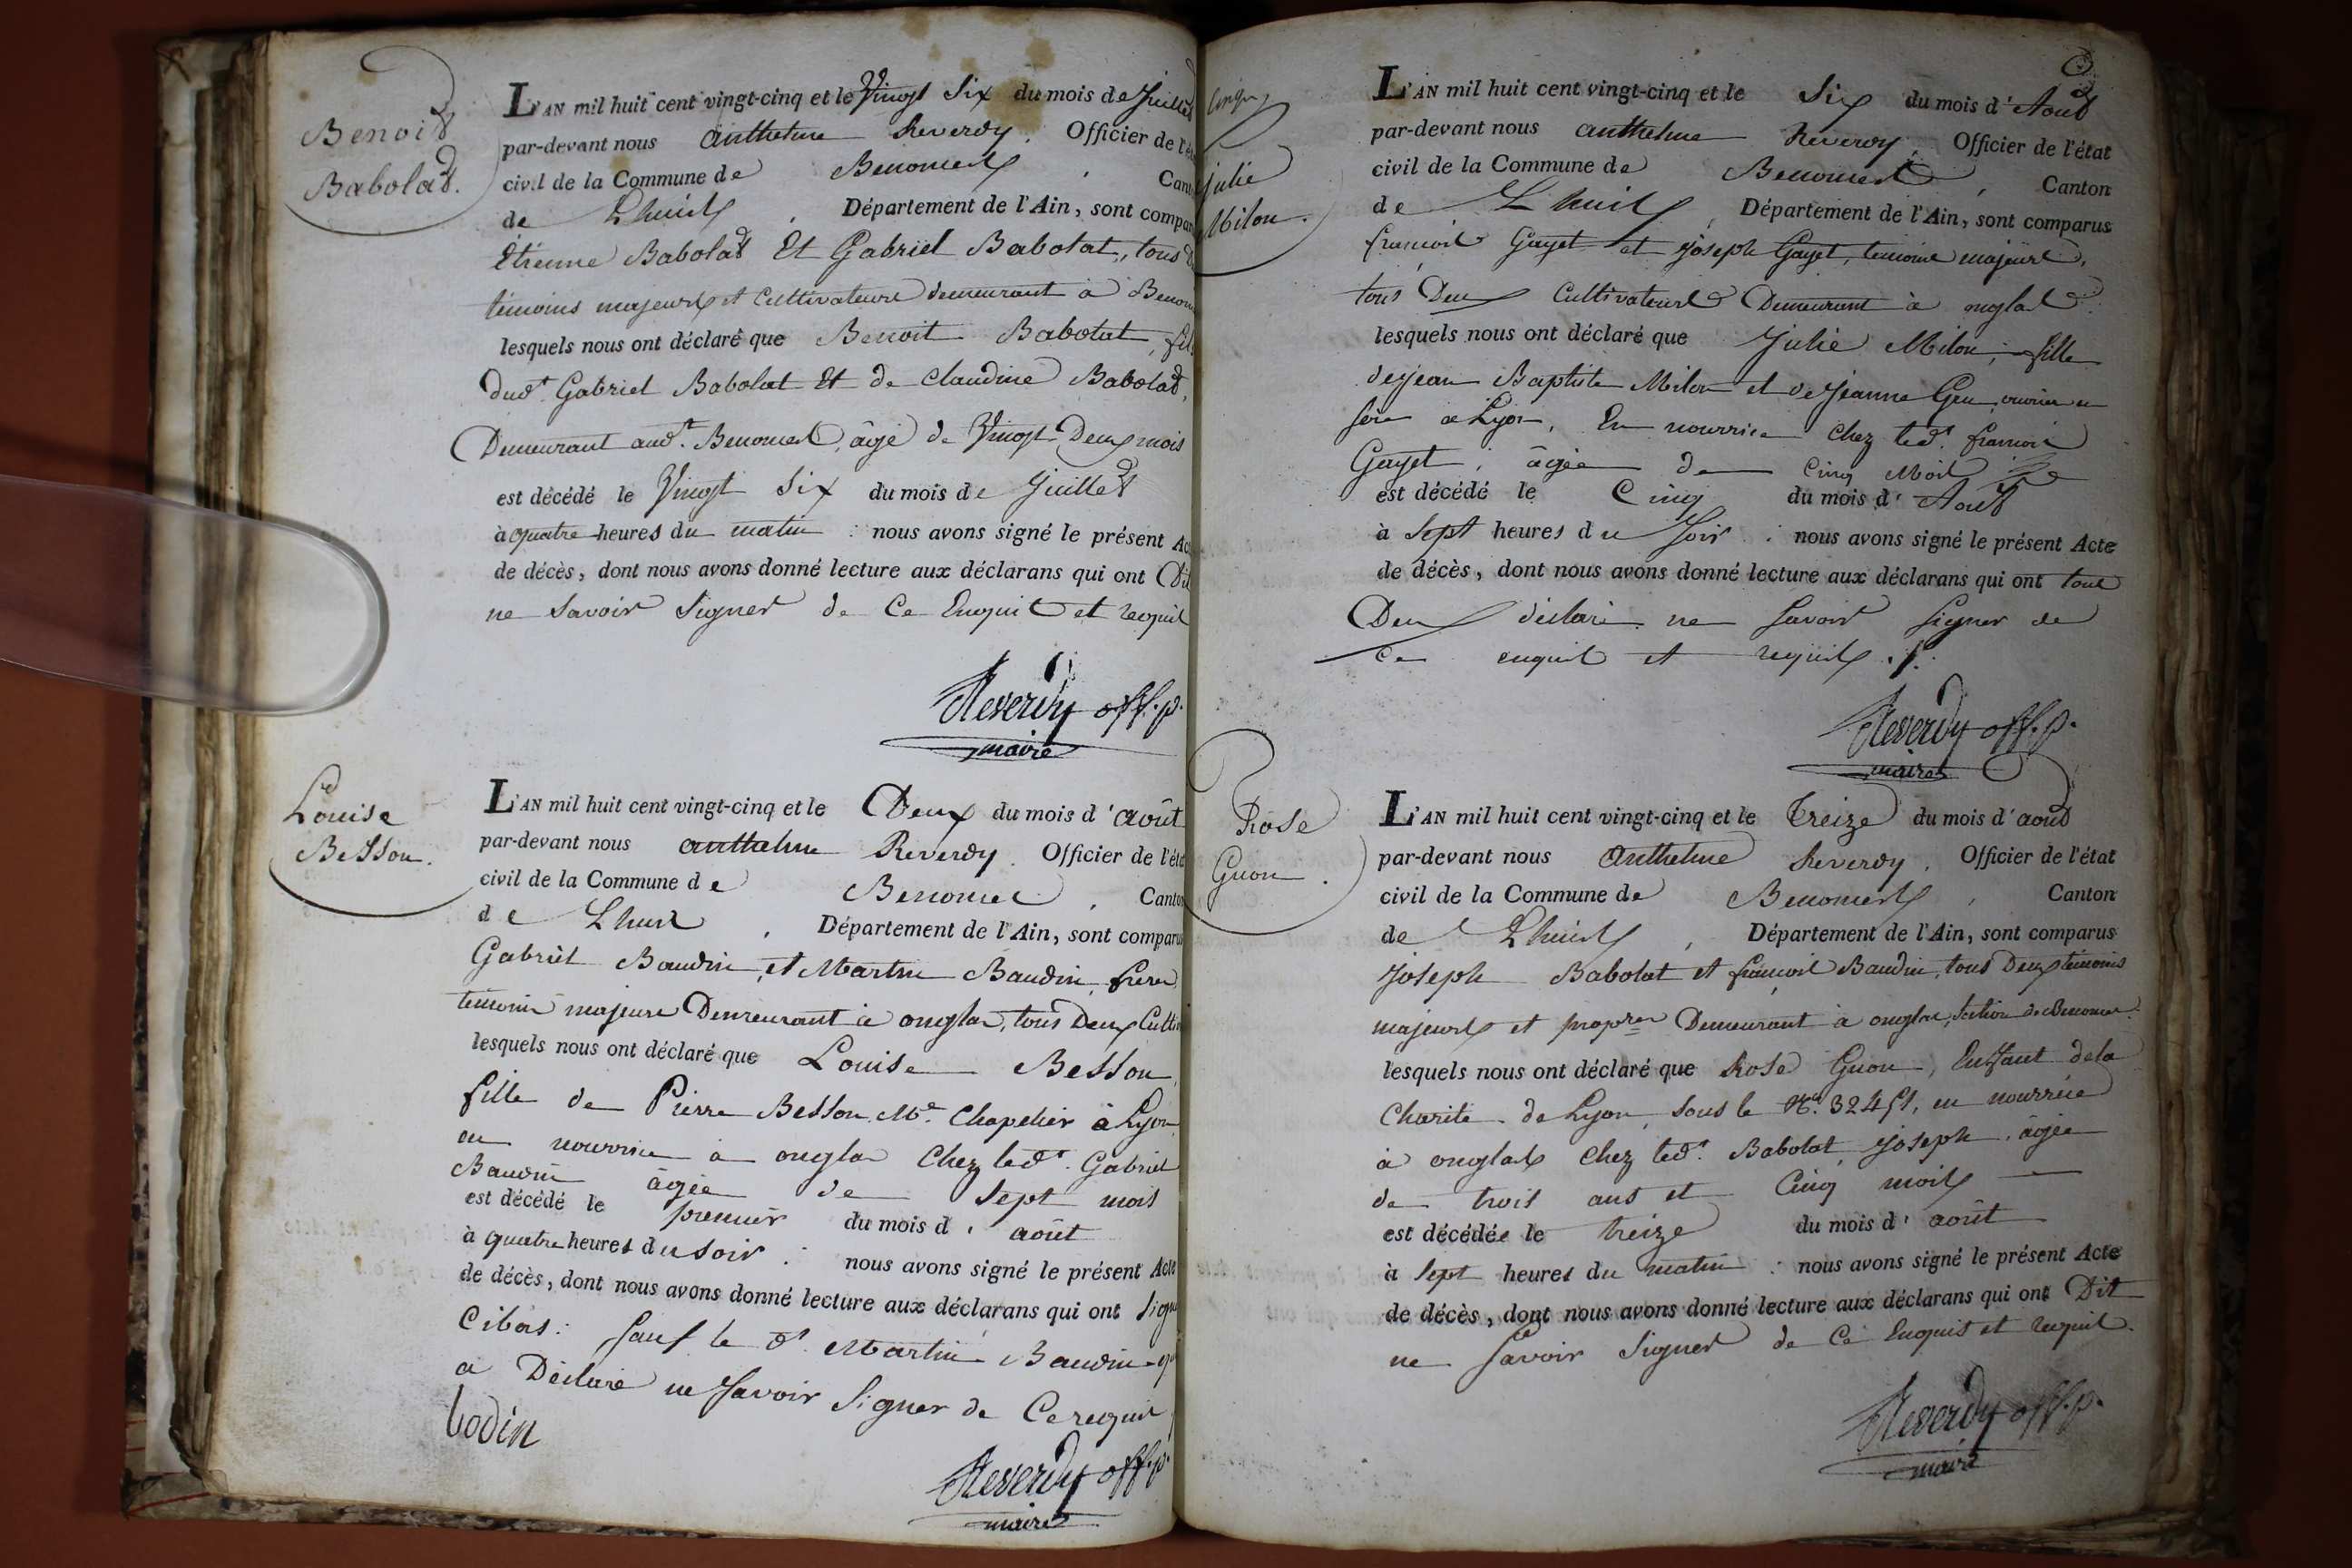 Benoit
Babolat.
L'AN mil huit cent vingt-cinq et le Vingt Six du mois de Juillet
par-devant nous anthelme Reverdy. Officier de l'é
civil de la Commune de Benonces, Cant
de Lhuis, Département de l'Ain, sont compar
Etienne Babolat Et Gabriel Babolat, tous d
témoins majeurs et Cultivateurs demeurant à Benon
lesquels nous ont déclaré que Benoit Babolat, fils
dudt. Gabriel Babolat Et de Claudine Babolat,
Demeurant audt. Benonces, âgé de Vingt Deux mois
est décédé le Vingt Six du mois de Juillet
à quatre heures du matin : nous avons signé le présent Ac
de décès, dont nous avons donné lecture aux déclarans qui ont Dit
ne Savoir Signer de Ce Enquis et requis
Reverdy off. p.
maire
Louise
Besson.
L'AN mil huit cent vingt-cinq et le Deux du mois d'août
par-devant nous anthelme Reverdy. Officier de l'éta
civil de la Commune de Benonces, Canton
de Lhuis, Département de l'Ain, sont comparus
Gabriel Baudin, et Martin Baudin, frères
témoins majeurs Demeurant à onglas, tous Deux Culti
lesquels nous ont déclaré que Louise Besson,
fille de Pierre Besson Md. Chapelier à Lyon,
en nourrice à onglas Chez ledt. Gabriel
Baudin âgée de Sept mois
est décédé le premier du mois d'août
à quatre heures du soir : nous avons signé le présent Acte
de décès, dont nous avons donné lecture aux déclarans qui ont Signé
Cibas : Sauf le dt. Martin Baudin qui
a Déclaré ne Savoir Signer de Ce requis
bodin
Reverdy off. p.
maire
Cinq
Julie
Milon.
L'AN mil huit cent vingt-cinq et le Six du mois d'Aout
par-devant nous anthelme Reverdy. Officier de l'état
civil de la Commune de Benonces, Canton
de Lhuis, Département de l'Ain, sont comparus
françois Guyet et joseph Guyet, témoins majeurs,
tous Deux Cultivateurs Demeurant à onglas
lesquels nous ont déclaré que Julie Milon, fille
de jean Baptiste Milon et de jeanne Gru, ouvrier en
soie à Lyon, En nourrice Chez ledt. françois
Guyet, âgée de Cinq Mois
est décédé le Cinq du mois d'Aout
à Sept heures du Soir : nous avons signé le présent Acte
de décès, dont nous avons donné lecture aux déclarans qui ont tous
Deux déclaré ne Savoir Signer de
Ce enquis et requis ./.
Reverdy off. p.
maire
Rose
Guon.
L'AN mil huit cent vingt-cinq et le treize du mois d'aout
par-devant nous Anthelme Reverdy. Officier de l'état
civil de la Commune de Benonces, Canton
de Lhuis, Département de l'Ain, sont comparus
joseph Babolat et françois Baudin, tous Deux témoins
majeurs et propres Demeurant à onglas, Section de Benonces.
lesquels nous ont déclaré que Rose Guon, Enfant de la
Charité de Lyon, Sous le No. 32451, en nourrice
à onglas Chez ledt. Babolat joseph, âgée
de trois ans et Cinq mois
est décédée le treize du mois d'août
à Sept heures du matin : nous avons signé le présent Acte
de décès, dont nous avons donné lecture aux déclarans qui ont Dit
ne Savoir Signer de Ce Enquis et requis.
Reverdy off. p.
maire